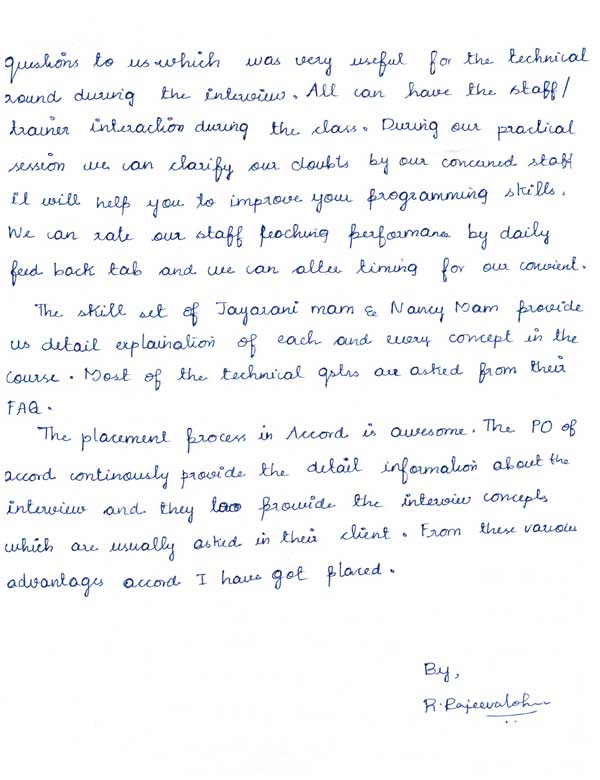 questions to us which was very useful for the technical
round during the interview. All can have the staff/
trainer interaction during the class. During our practical
session we can clarify our doubts by our concerned staff
it will help you to improve your programming skills.
We can rate our staff teaching performane by daily
feed back tab and we can alter timing for our convient.
The skill set of Jayarani mam & Nancy Mam provide
us detail explaination of each and every concept in the
course. Most of the technical qstns are asked from their
FAQ.
The placement process in Accord is awesome. The PO of
accord continously provide the detail information about the
interview and they too provide the interview concepts
which are usually asked in their client. From these various
advantages accord I have got placed.
By,
R.